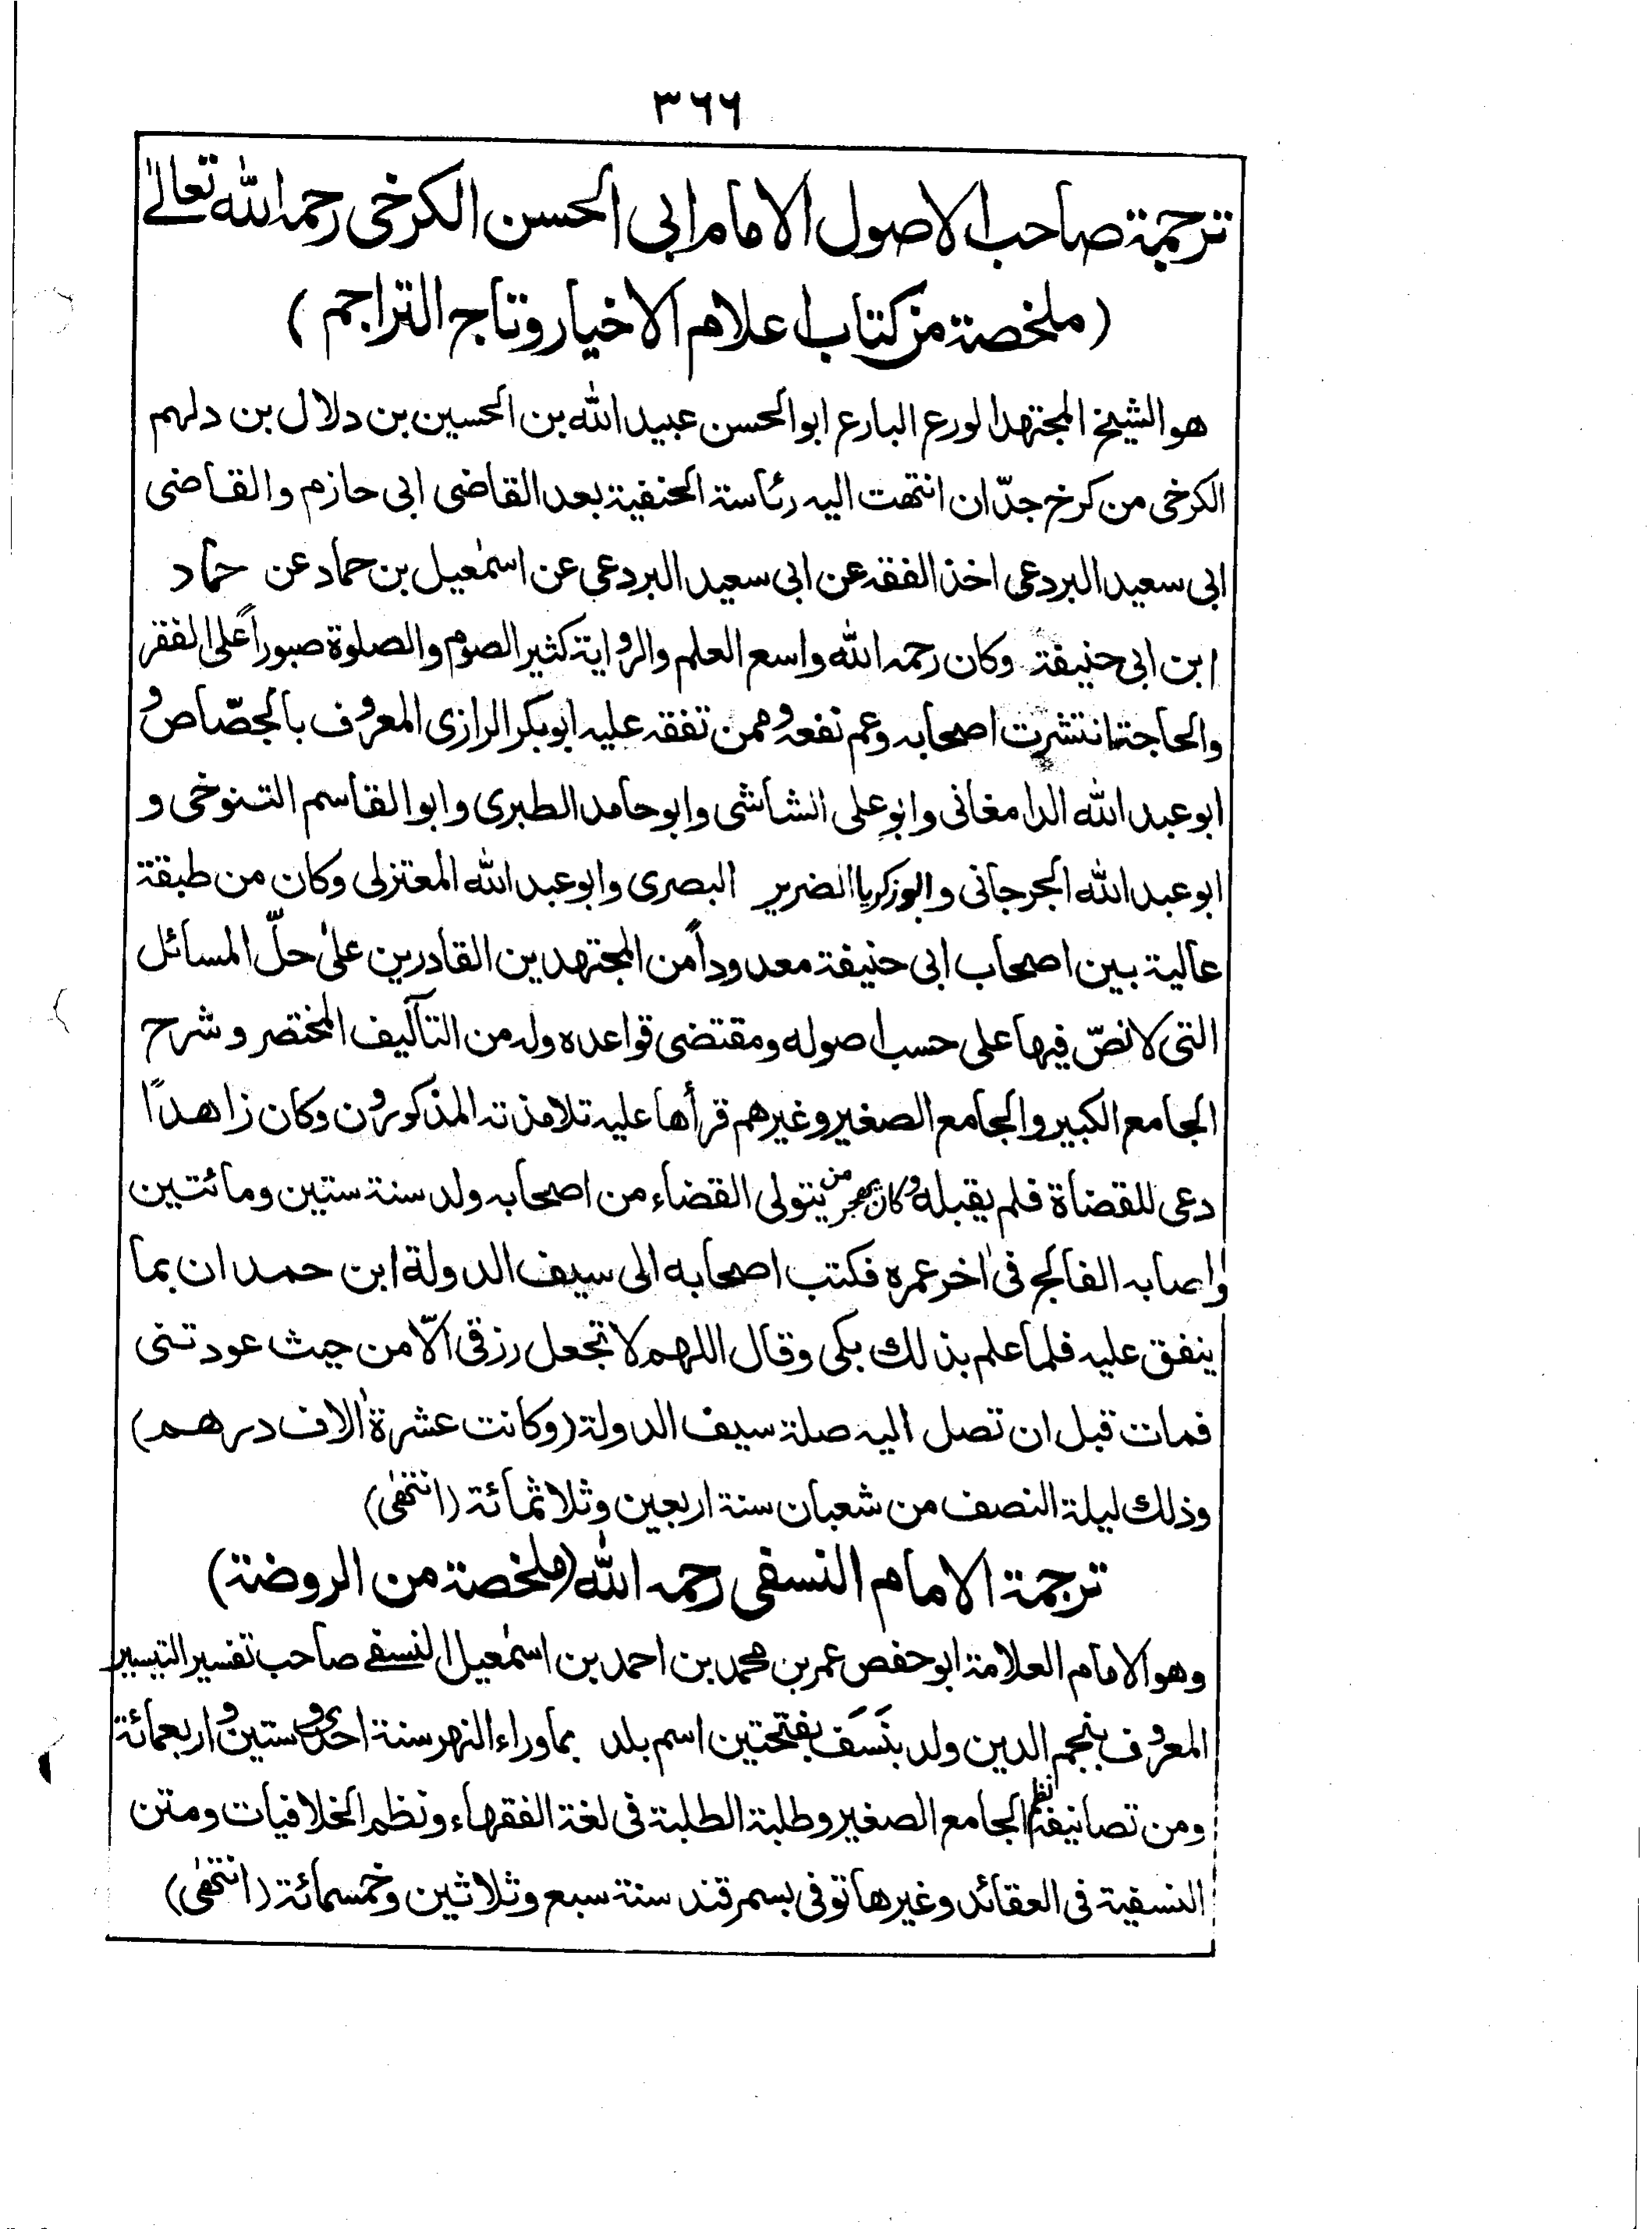 ٣٦٦
ترجمة صاحب الاصول الامام ابى الحسن الكرخى رحمه الله تعالى
(ملخصة من كتاب اعلام الاخيار وتاج التراجم)
هو الشيخ المجتهد الورع البارع ابو الحسن عبيد الله بن الحسين بن دلال بن دلهم
الكرخى من كرخ جدّان انتهت اليه رئاسة الحنفية بعد القاضى ابى حازم والقاضى
ابى سعيد البردعى اخذ الفقه عن ابى سعيد البردعى عن اسمٰعيل بن حماد عن حماد
ابن ابى حنيفة وكان رحمه الله واسع العلم والرواية كثير الصوم والصلوة صبوراً على الفقر
والحاجة انتشرت اصحابه وعم نفعه وممن تفقه عليه ابوبكر الرازى المعروف بالجصّاص و
ابو عبد الله الدامغانى وابو على الشاشى وابو حامد الطبرى وابو القاسم التنوخى و
ابو عبد الله الجرجانى وابو زكريا الضرير البصرى وابو عبد الله المعتزلى وكان من طبقة
عالية بين اصحاب ابى حنيفة معدوداً من المجتهدين القادرين علىٰ حلّ المسائل
التى لا نصّ فيها على حسب اصوله ومقتضى قواعده وله من التآليف المختصر وشرح
الجامع الكبير والجامع الصغير وغيرهم قرأها عليه تلامذته المذكورون وكان زاهداً
دعى للقضاة فلم يقبله وكان يهجر من يتولى القضاء من اصحابه ولد سنة ستين ومائتين
واصابه الفالج فى اٰخر عمره فكتب اصحابه الى سيف الدولة ابن حمدان بما
ينفق عليه فلما علم بذلك بكى وقال اللهم لا تجعل رزقى الّا من حيث عودتنى
فمات قبل ان تصل اليه صلة سيف الدولة (وكانت عشرة اٰلاف درهم)
وذلك ليلة النصف من شعبان سنة اربعين وثلاثمائة (انتهٰى)
ترجمة الامام النسفى رحمه الله (ملخصة من الروضة)
وهو الامام العلامة ابو حفص عمر بن محمد بن احمد بن اسمٰعيل النسفى صاحب تفسير التيسير
المعروف بنجم الدين ولد بنَسَف بفتحتين اسم بلد بماوراء النهر سنة احدى وستين واربعمائة
ومن تصانيفه نظم الجامع الصغير وطلبة الطلبة فى لغة الفقهاء ونظم الخلافيات ومتن
النسفية فى العقائد وغيرها توفى بسمرقند سنة سبع وثلاثين وخمسمائة (انتهٰى)